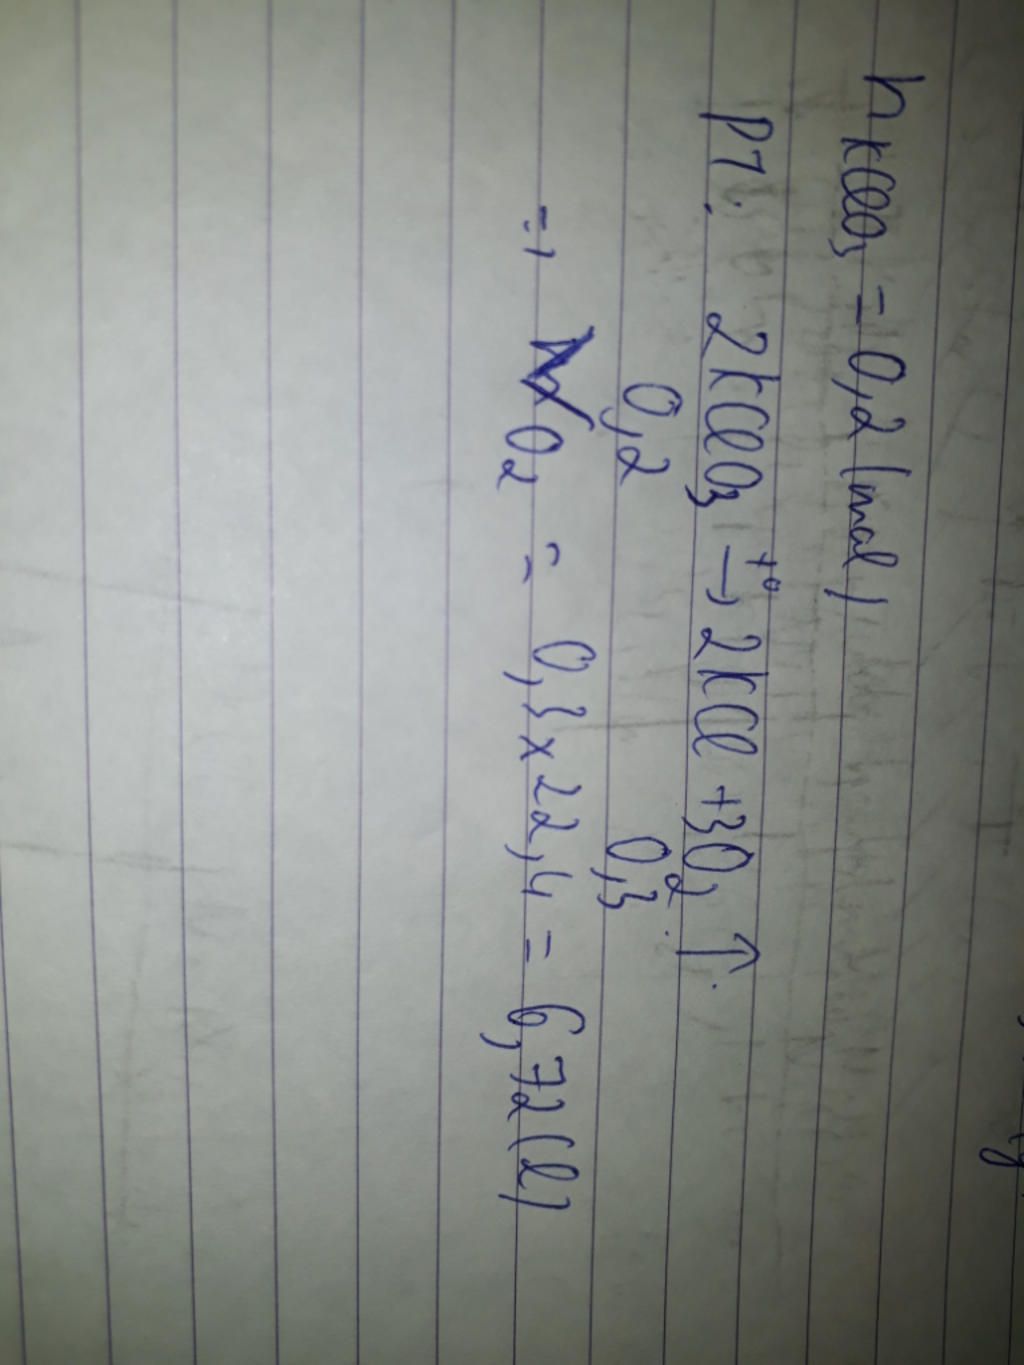 nKClO₃ = 0,2 (mol)
PT: 2KClO₃ →t° 2KCl + 3O₂ ↑.
0,2 0,3
=> VO₂ = 0,3 x 22,4 = 6,72 (l)